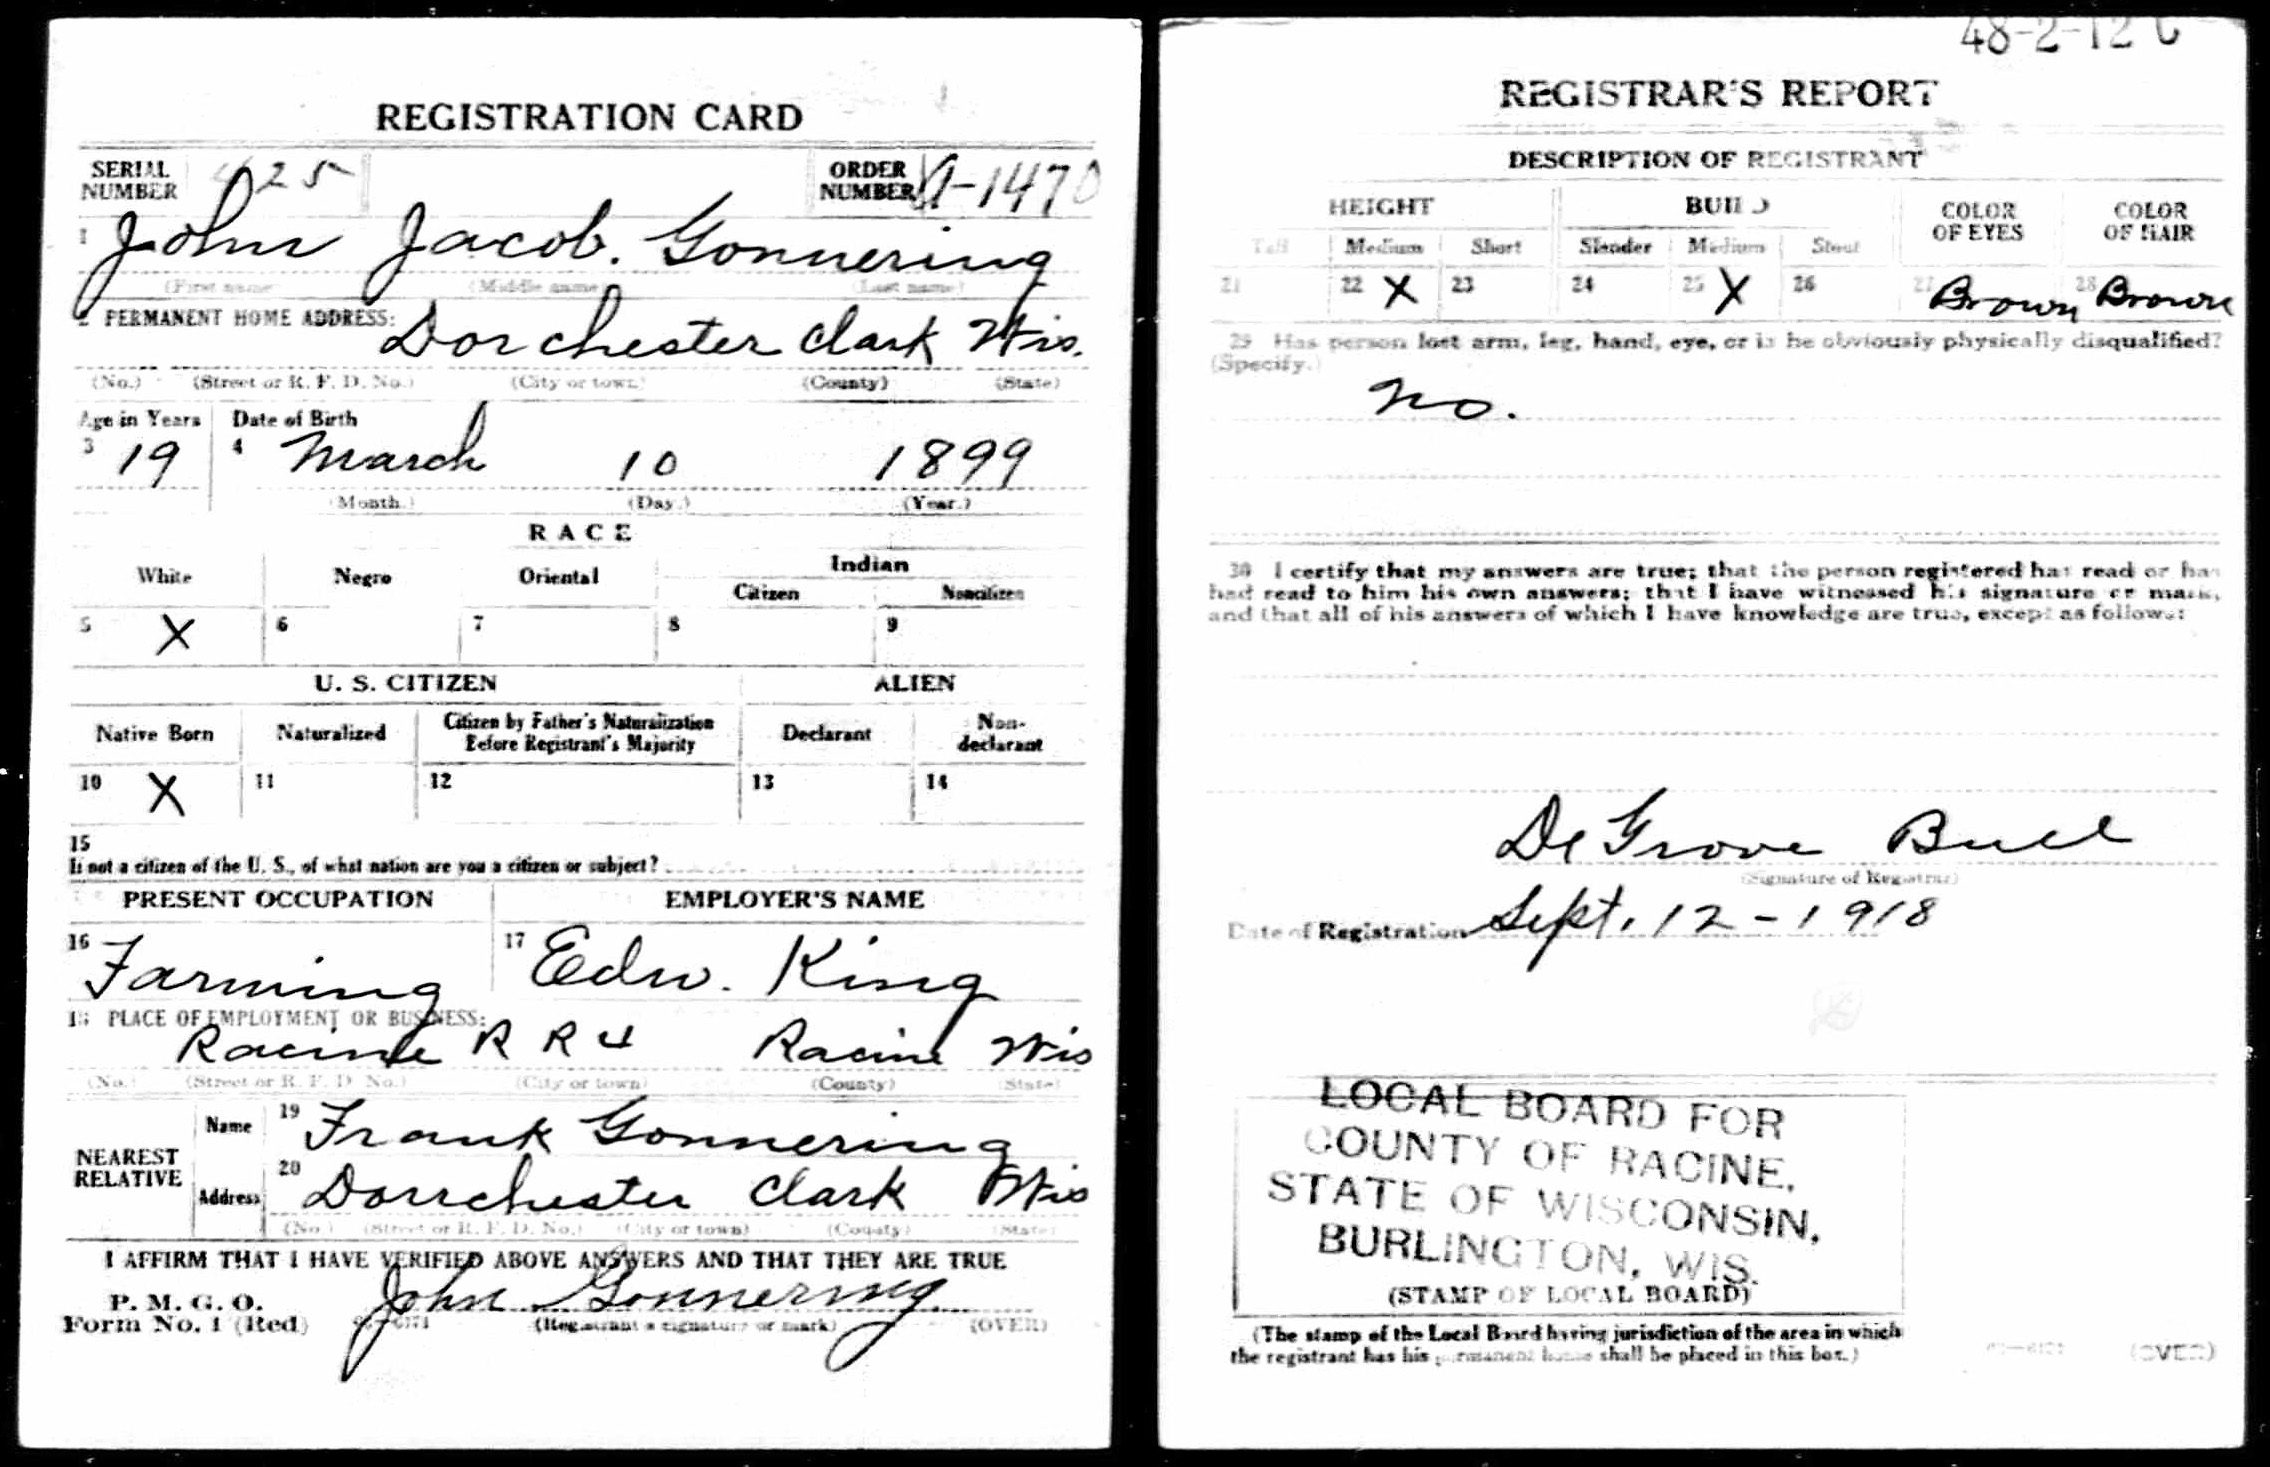 REGISTRATION CARD
SERIAL NUMBER 25 ORDER NUMBER A-1470
1 John Jacob. Gonnering
(First name) (Middle name) (Last name)
2 PERMANENT HOME ADDRESS: Dorchester Clark Wis.
(No.) (Street or R. F. D. No.) (City or town) (County) (State)
Age in Years Date of Birth
3 19 4 March 10 1899
(Month.) (Day.) (Year.)
RACE
White Negro Oriental Indian
Citizen Noncitizen
5 X 6 7 8 9
U. S. CITIZEN ALIEN
Native Born Naturalized Citizen by Father's Naturalization Before Registrant's Majority Declarant Non-declarant
10 X 11 12 13 14
15
If not a citizen of the U. S., of what nation are you a citizen or subject?
PRESENT OCCUPATION EMPLOYER'S NAME
16 Farming 17 Edw. King
18 PLACE OF EMPLOYMENT OR BUSINESS:
Racine R R 4 Racine Wis
(No.) (Street or R. F. D. No.) (City or town) (County) (State)
NEAREST RELATIVE
Name 19 Frank Gonnering
Address 20 Dorrchester Clark Wis
(No.) (Street or R. F. D. No.) (City or town) (County) (State)
I AFFIRM THAT I HAVE VERIFIED ABOVE ANSWERS AND THAT THEY ARE TRUE
P. M. G. O.
Form No. 1 (Red) John Gonnering
(Registrant's signature or mark) (OVER)
48-2-12 C
REGISTRAR'S REPORT
DESCRIPTION OF REGISTRANT
HEIGHT BUILD COLOR OF EYES COLOR OF HAIR
Tall Medium Short Slender Medium Stout
21 22 X 23 24 25 X 26 27 Brown 28 Brown
29 Has person lost arm, leg, hand, eye, or is he obviously physically disqualified?
(Specify.)
No.
30 I certify that my answers are true; that the person registered has read or has
had read to him his own answers; that I have witnessed his signature or mark,
and that all of his answers of which I have knowledge are true, except as follows:
De Grove Buel
(Signature of Registrar)
Date of Registration Sept. 12-1918
LOCAL BOARD FOR
COUNTY OF RACINE,
STATE OF WISCONSIN,
BURLINGTON, WIS.
(STAMP OF LOCAL BOARD)
(The stamp of the Local Board having jurisdiction of the area in which
the registrant has his permanent home shall be placed in this box.)
(OVER)